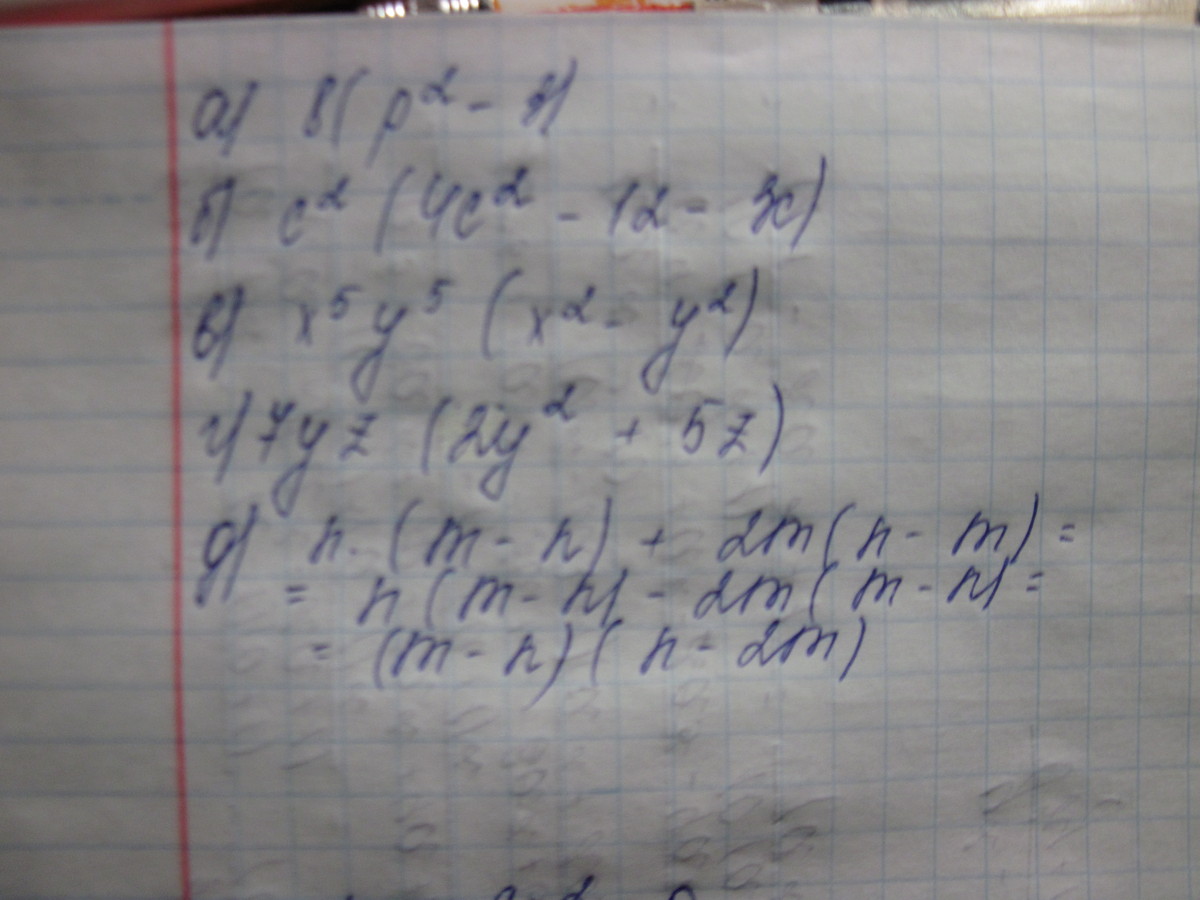 а) 8(p² -
б) c² (4c² - 12 - 3c)
в) x⁵y⁵ (x² - y²)
г) 7yz (2y² + 5z)
д) n·(m - n) + 2m(n - m) =
= n(m - n) - 2m(m - n) =
= (m - n)(n - 2m)